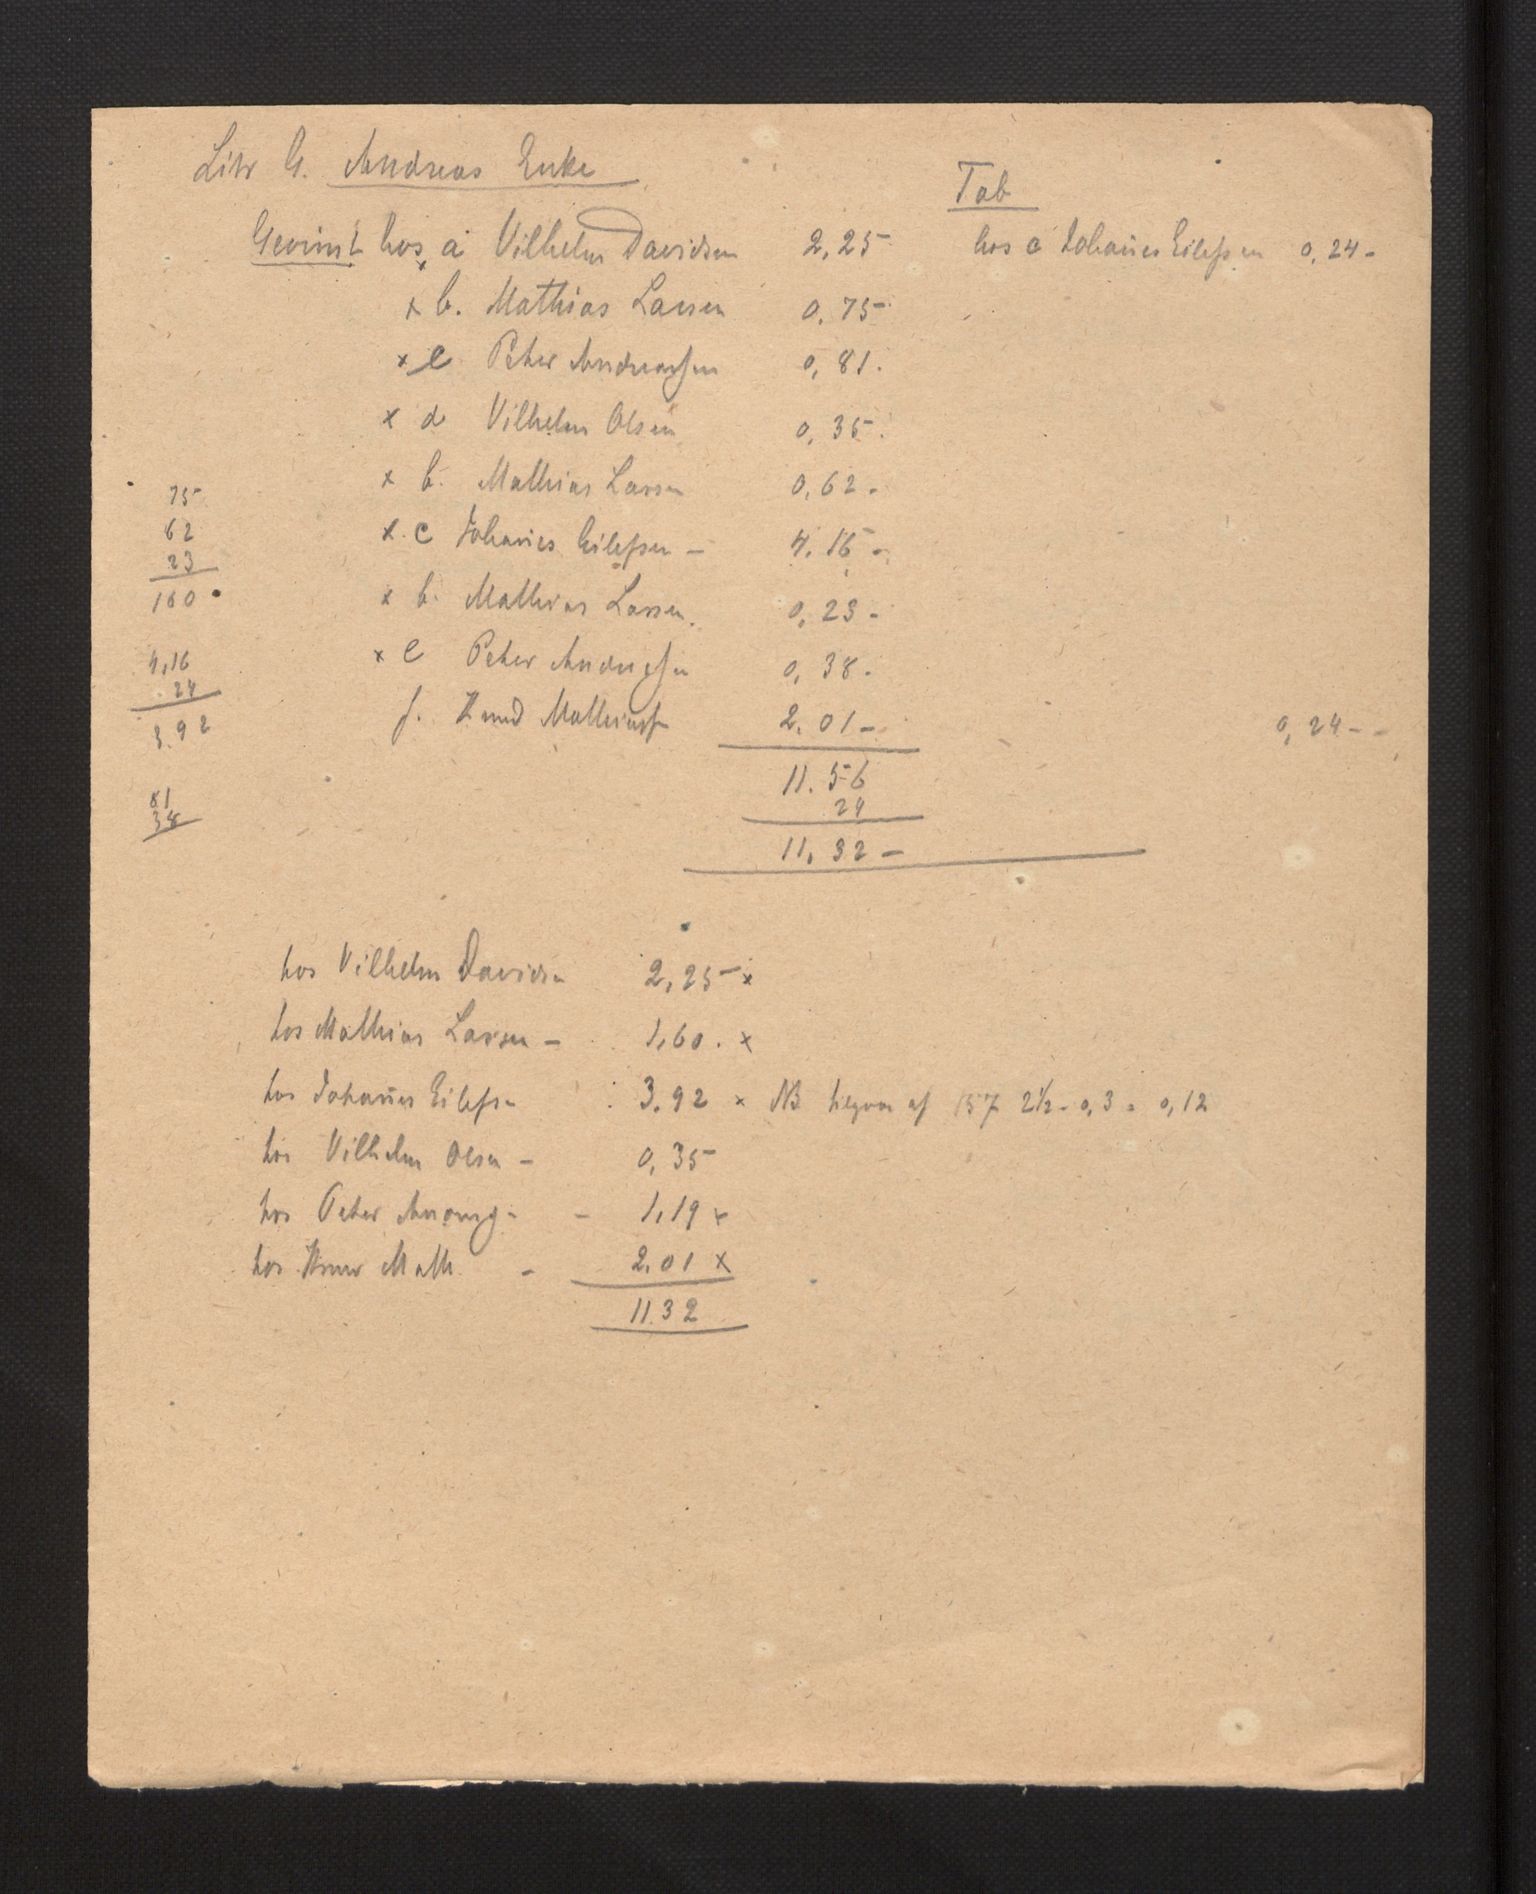 Litr G. Andreas Enke
Tab
Gevinst hos a Vilhelm Davidsen 2,25 hos c Johannes Eilefsen 0,24 -
x b. Mathias Larsen 0,75 -
x e Peter Andreassen 0,81.
x d Vilhelm Olsen 0,35.
x b. Mathias Larsen 0,62 -
x c Johannes Eilefsen - 4,16 -
x b. Mathias Larsen. 0,23 -
x e Peter Andreassen 0,38.
f. Knud Mathiass 2,01 - 0,24 -
11.56
24
11,32 -
75
62
23
160
4,16
24
3,92
81
38
hos Vilhelm Davidsen 2,25 x
hos Mathias Larsen - 1,60. x
hos Johannes Eilefsen 3,92 x NB af 157 2½ - 0,3 = 0,12
hos Vilhelm Olsen - 0,35
hos Peter - 1,19 x
hos Knud Math - 2,01 x
11.32